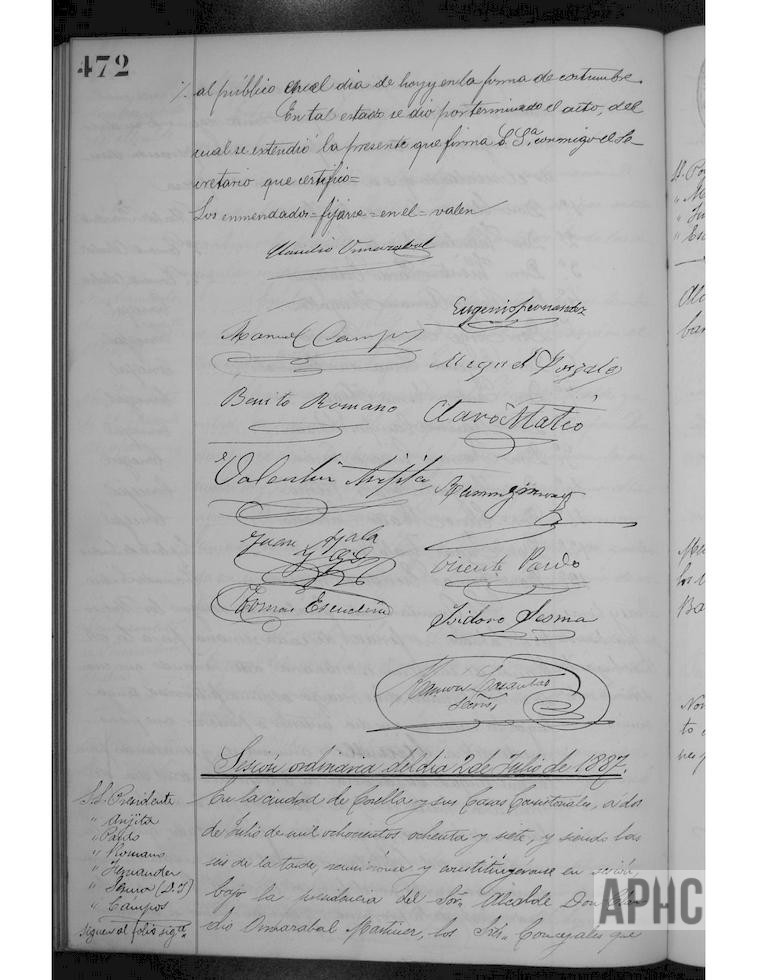 472
al público en el dia de hoy y en la forma de costumbre.
En tal estado se dió por terminado el acto, del
cual se extendió la presente que firma S. Sª. conmigo el Se-
cretario que certifico=
Los enmendados=fijarse=en el=valen
Claudio Omarabal
Eugenio Fernandez
Manuel Campos
Miguel
Benito Romano
Claro Mateo
Valentin Arjita
Ramon
Juan Ayala
Vicente Pardo
Tomas Escudero
Isidoro Sesma
Ramon
Secrio.
Sesión ordinaria del dia 2 de Julio de 1887.
S.S. Presidente
" Arjita
" Pardo
" Romano
" Fernandez
" Sesma (D. I)
" Campos
siguen al folio sigte.
En la ciudad de Corella y sus Casas Consistoriales, á dos
de Julio de mil ochocientos ochenta y siete, y siendo las
seis de la tarde, reunieronse y constituyéronse en sesión,
bajo la presidencia del Sor. Alcalde Don Clau-
dio Omarabal Martinez, los Srs. Concejales que
APHC